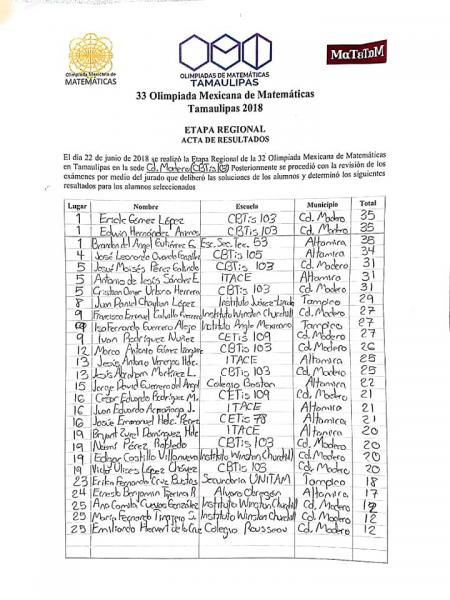 Olimpiada Mexicana de
MATEMÁTICAS
OLIMPIADAS DE MATEMÁTICAS
TAMAULIPAS
MaTeTaM
33 Olimpiada Mexicana de Matemáticas
Tamaulipas 2018
ETAPA REGIONAL
ACTA DE RESULTADOS
El día 22 de junio de 2018 se realizó la Etapa Regional de la 32 Olimpiada Mexicana de Matemáticas
en Tamaulipas en la sede Cd. Madero (CBTis 103) Posteriormente se procedió con la revisión de los
exámenes por medio del jurado que deliberó las soluciones de los alumnos y determinó los siguientes
resultados para los alumnos seleccionados
Lugar Nombre Escuela Municipio Total
1 Gómez López CBTis 103 Cd. Madero 35
1 Edwin Hernández CBTis 103 Cd. Madero 35
1 Brandon del Angel Gutiérrez G. Esc. Sec. Tec. 53 Altamira 35
4 José Leonardo CBTis 105 Altamira 34
5 Josué Moisés Pérez CBTis 103 Cd. Madero 31
5 Antonio de Jesús Sánchez E. ITACE Altamira 31
5 Cristian Omar Herrera CBTis 103 Cd. Madero 31
8 Juan Daniel López Instituto Tampico 29
9 Francisco Instituto Winston Churchill Cd. Madero 27
9 Fernando Guerrero Alejo Instituto Anglo Mexicano Tampico 27
9 Ivan Rodríguez Nuñez CETis 109 Cd. Madero 27
12 Marco Antonio Gámez CBTis 103 Cd. Madero 26
13 Jesús Antonio Hdz. ITACE Altamira 25
13 Jesús Abraham Martínez L. CBTis 103 Cd. Madero 25
15 Jorge David Guerrero del Angel Colegio Boston Altamira 22
16 Cesar Eduardo Rodríguez M. CETis 109 Cd. Madero 21
16 Juan Eduardo J. ITACE Altamira 21
16 Josué Emmanuel Hdz. Pérez CETis 78 Altamira 21
19 Hdz. ITACE Altamira 20
19 Pérez CBTis 103 Cd. Madero 20
19 Edgar Castillo Villanueva Instituto Winston Churchill Cd. Madero 20
19 Ulises López Chávez CBTis 103 Cd. Madero 20
23 Fernanda Cruz Bustos Secundaria UNITAM Tampico 18
24 Ernesto Benjamin R. Alvaro Obregón Altamira 17
25 Ana Camila Cuevas González Instituto Winston Churchill Cd. Madero 12
25 Fernando J. Instituto Winston Churchill Cd. Madero 12
25 Emiliano de la Cruz Colegio Rousseau Cd. Madero 12